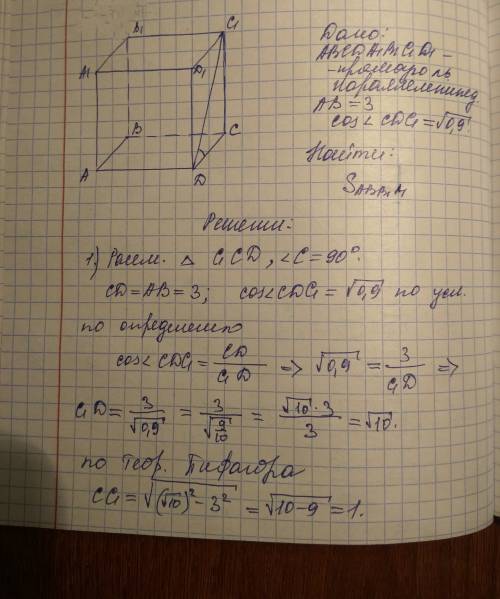 B1
C1
A1
D1
B
C
A
D
Дано:
ABCDA1B1C1D1 -
- прямоуголь
параллелепипед
AB = 3
cos < CDC1 = √0,9
Найти:
SABB1A1
Решение:
1.) Рассм. △ C1CD, <C = 90°.
CD = AB = 3; cos < CDC1 = √0,9 по усл.
по определению
cos < CDC1 = CD/C1D => √0,9 = 3/C1D =>
C1D = 3/√0,9 = 3/√(9/10) = √10·3/3 = √10.
по Теор. Пифагора
CC1 = √((√10)² - 3²) = √(10-9) = 1.